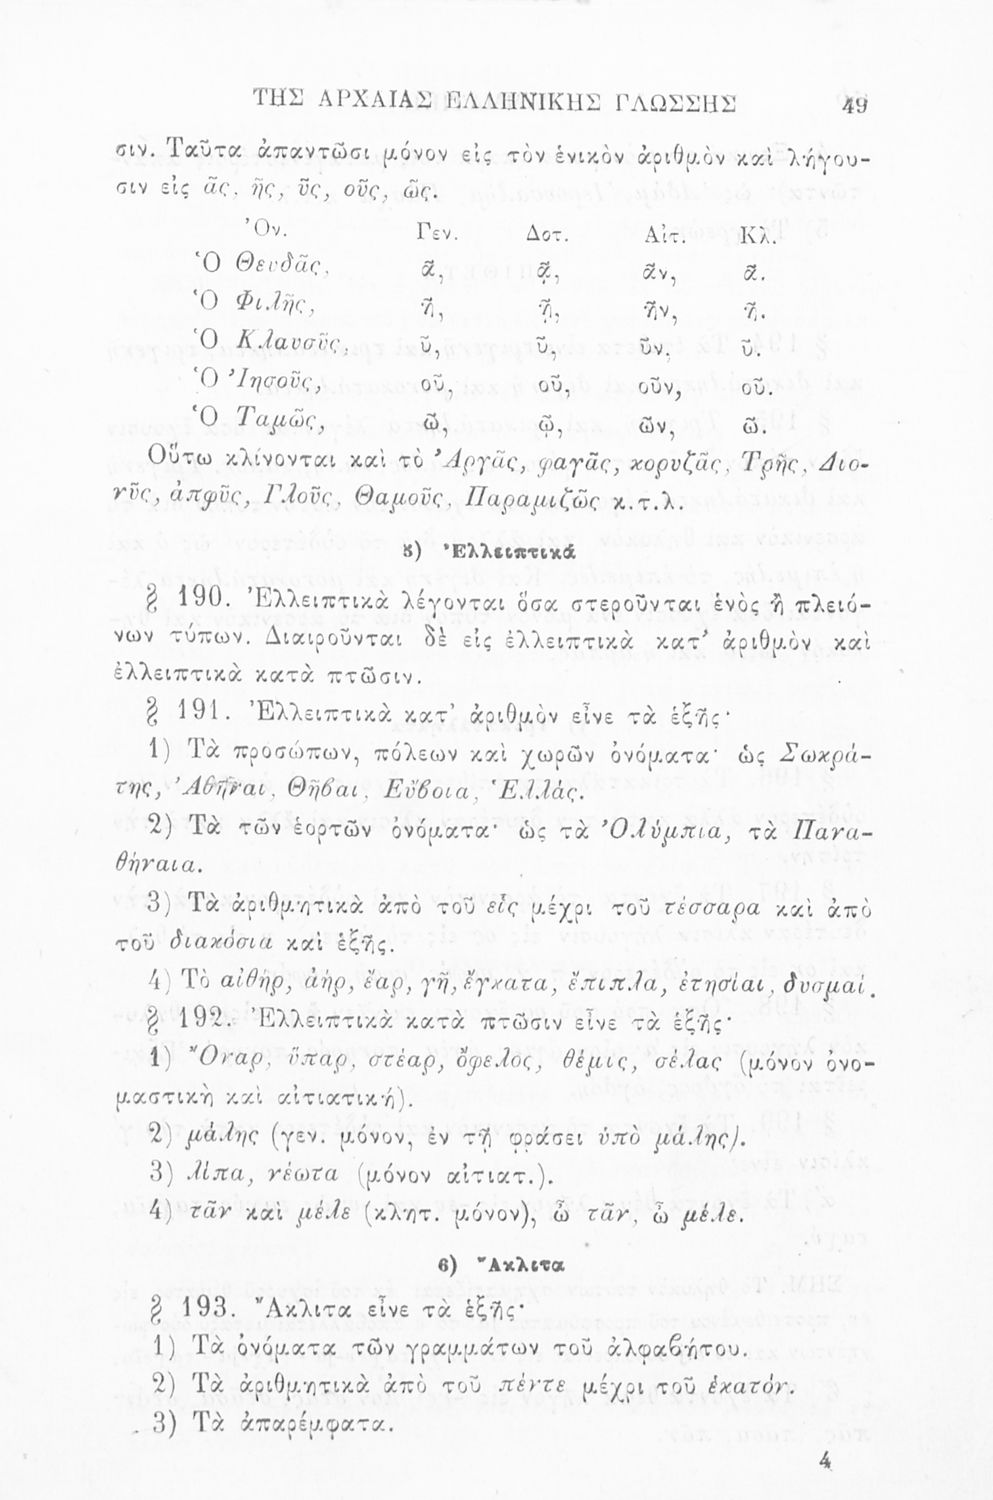 ΤΗΣ ΑΡΧΑΙΑΣ ΕΛΛΗΝΙΚΗΣ ΓΛΩΣΣΗΣ 49
σιν. Ταῦτα ἀπαντῶσι μόνον εἰς τὸν ἑνικὸν ἀριθμὸν καὶ λήγου-
σιν εἰς ᾶς, ῆς, ῦς, οῦς, ῶς.
Ὀν. Γεν. Δοτ. Αἰτ. Κλ.
Ὁ Θευδᾶς, ᾶ, ᾷ, ᾶν, ᾶ.
Ὁ Φιλῆς, ῆ, ῇ, ῆν, ῆ.
Ὁ Κλαυσῦς, ῦ, ῦ, ῦν, ῦ.
Ὁ Ἰησοῦς, οῦ, οῦ, οῦν, οῦ.
Ὁ Ταμῶς, ῶ, ῷ, ῶν, ῶ.
Οὕτω κλίνονται καὶ τὸ Ἀργᾶς, φαγᾶς, κορυζᾶς, Τρῆς, Διο-
νῦς, ἀπφῦς, Γλοῦς, Θαμοῦς, Παραμιζῶς κ.τ.λ.
5) Ἐλλειπτικά
§ 190. Ἐλλειπτικὰ λέγονται ὅσα στεροῦνται ἑνὸς ἢ πλειό-
νων τύπων. Διαιροῦνται δὲ εἰς ἐλλειπτικὰ κατ' ἀριθμὸν καὶ
ἐλλειπτικὰ κατὰ πτῶσιν.
§ 191. Ἐλλειπτικὰ κατ' ἀριθμὸν εἶνε τὰ ἑξῆς·
1) Τὰ προσώπων, πόλεων καὶ χωρῶν ὀνόματα· ὡς Σωκρά-
της, Ἀθῆναι, Θῆβαι, Εὔβοια, Ἑλλάς.
2) Τὰ τῶν ἑορτῶν ὀνόματα· ὡς τὰ Ὀλύμπια, τὰ Πανα-
θήναια.
3) Τὰ ἀριθμητικὰ ἀπὸ τοῦ εἷς μέχρι τοῦ τέσσαρα καὶ ἀπὸ
τοῦ διακόσια καὶ ἑξῆς.
4) Τὸ αἰθήρ, ἀήρ, ἔαρ, γῆ, ἔγκατα, ἔπιπλα, ἐτησίαι, δυσμαί.
§ 192. Ἐλλειπτικὰ κατὰ πτῶσιν εἶνε τὰ ἑξῆς·
1) Ὄναρ, ὕπαρ, στέαρ, ὄφελος, θέμις, σέλας (μόνον ὀνο-
μαστικὴ καὶ αἰτιατική).
2) μάλης (γεν. μόνον, ἐν τῇ φράσει ὑπὸ μάλης).
3) λίπα, νέωτα (μόνον αἰτιατ.).
4) τᾶν καὶ μέλε (κλητ. μόνον), ὦ τᾶν, ὦ μέλε.
6) Ἄκλιτα
§ 193. Ἄκλιτα εἶνε τὰ ἑξῆς·
1) Τὰ ὀνόματα τῶν γραμμάτων τοῦ ἀλφαβήτου.
2) Τὰ ἀριθμητικὰ ἀπὸ τοῦ πέντε μέχρι τοῦ ἑκατόν.
3) Τὰ ἀπαρέμφατα.
4